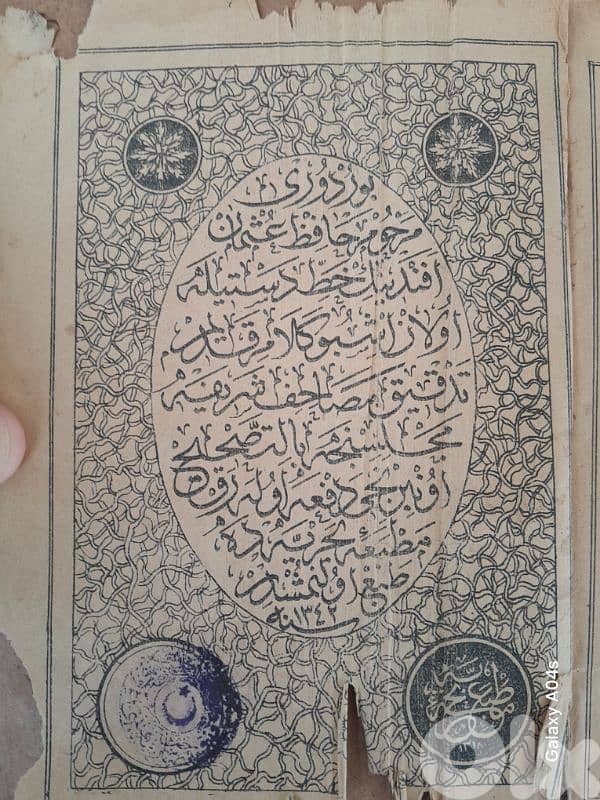 بوردوری
مرحوم حافظ عثمان
افندینك خط دستیله
اولان اشبو كلام قدیم
تدقیق مصاحف شریفه
مجلسنجه بالتصحیح
اونبرنجی دفعه اوله رق
مطبعهٔ بحریه ده
طبع اولنمشدر
سنه ١٣٤٢
Galaxy A04s
olx